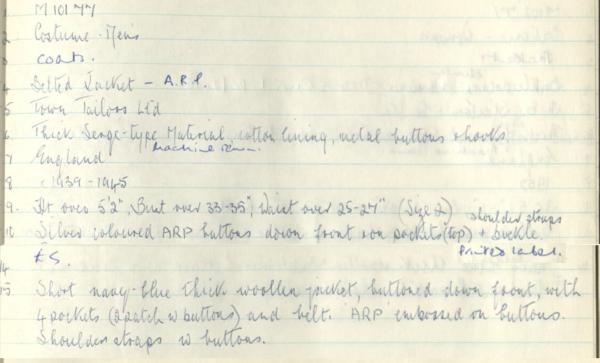 1 M10177
2 Costume - Mens
3 coats.
4 Belted Jacket - A.R.P.
5 Town Tailors Ltd
6 Thick Serge-type Material, cotton lining, metal buttons & hooks.
7 England machine sewn.
8 c 1939-1945
9. Ht over 5'2", Bust over 33-35", Waist over 25-27" (Size 2) shoulder straps
10 Silver coloured ARP buttons down front & on pockets (top) + buckle
Printed label.
14 £5.
15 Short navy-blue thick woollen jacket, buttoned down front, with
4 pockets (2 patch w buttons) and belt. ARP embossed on buttons.
Shoulder straps w buttons.